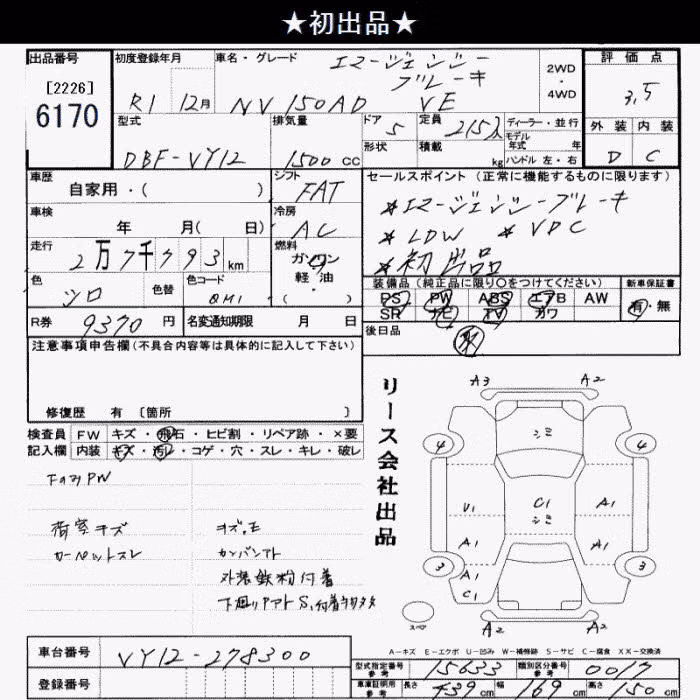 ★初出品★
出品番号
[2226]
6170
初度登録年月
R1 12月
車名・グレード
エマージェンシー
ブレーキ
NV150AD VE
2WD
・
4WD
評価点
3.5
型式
DBF-VY12
排気量
1500 cc
ドア
5
形状
定員
2/5人
積載
kg
ディーラー・並行
モデル
年式 年
ハンドル 左・右
外装 内装
D C
車歴
自家用・( )
シフト
FAT
車検
年 月( 日)
冷房
AC
走行
2万7千793km
燃料
ガソリン
軽・油
・( )
色
シロ
色替
色コード
QM1
R券
9370円
名変通知期限 月 日
セールスポイント (正常に機能するものに限ります)
*エマージェンシーブレーキ
*LDW *VDC
*初出品
装備品 (純正品に限り○をつけてください)
PS PW ABS エアB AW
SR ナビ TV カワ
新車保証書
有・無
後日品
注意事項申告欄 (不具合内容等は具体的に記入して下さい)
修復歴 有 [箇所 ]
検査員 FW キズ・飛石・ヒビ割・リペア跡・×要
記入欄 内装 キズ・汚レ・コゲ・穴・スレ・キレ・破レ
荷室キズ
カーペットスレ
カンバンアト
外装鉄粉付着
リース会社出品
A3 A2
4 シミ 4
U1 C1 シミ A1
A1 A1
3 A1 3
C1
スペア
A2 A2
A-キズ E-エクボ U-凹み W-補修跡 S-サビ C-腐食 XX-交換済
車台番号
VY12-278300
登録番号
型式指定番号
参考
15633
類別区分番号
参考
0017
車庫証明用
参考
長さ 439cm 幅 169cm 高さ 150cm